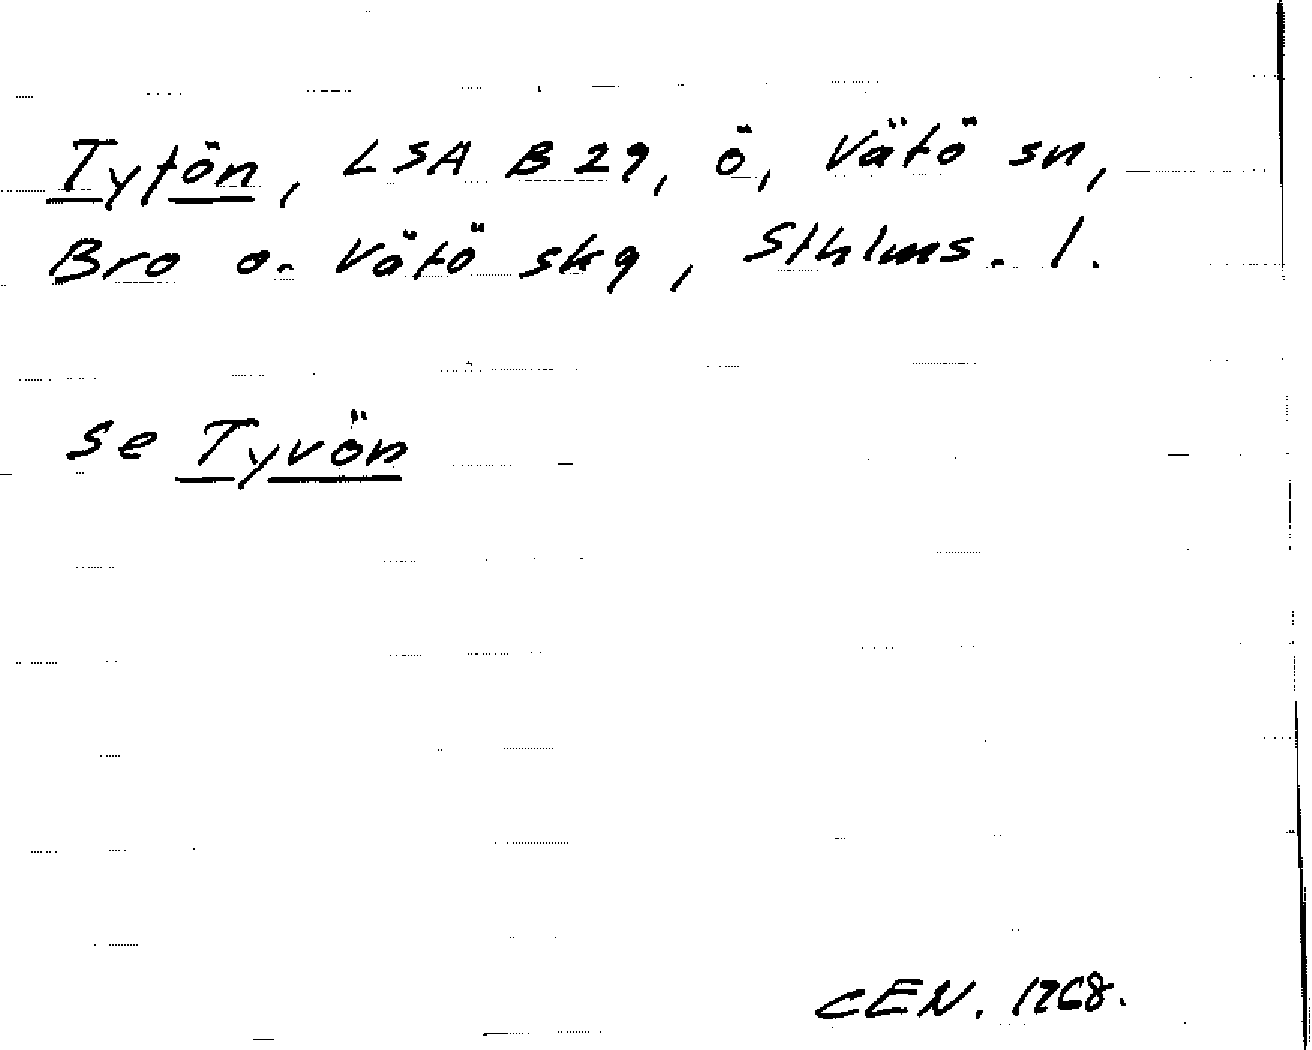 Tytön, LSA B 29, ö, Vätö sn,
Bro o. Vätö skg, Sthlms. l.
se Tyvön
CEN. 1968.